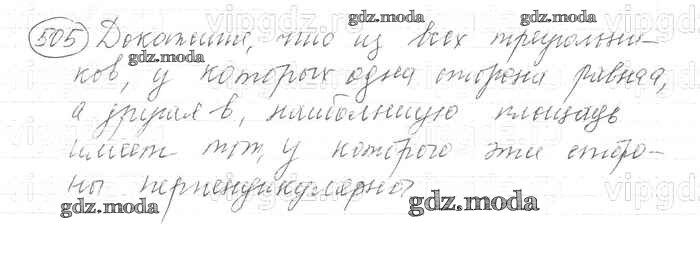 505 Докажите, что из всех треугольни-
ков, у которых одна сторона равна а,
а другая в, наибольшую площадь
имеет тот, у которого эти сторо-
ны перпендикулярны
gdz.moda
gdz.moda
gdz.moda
gdz.moda
gdz.moda